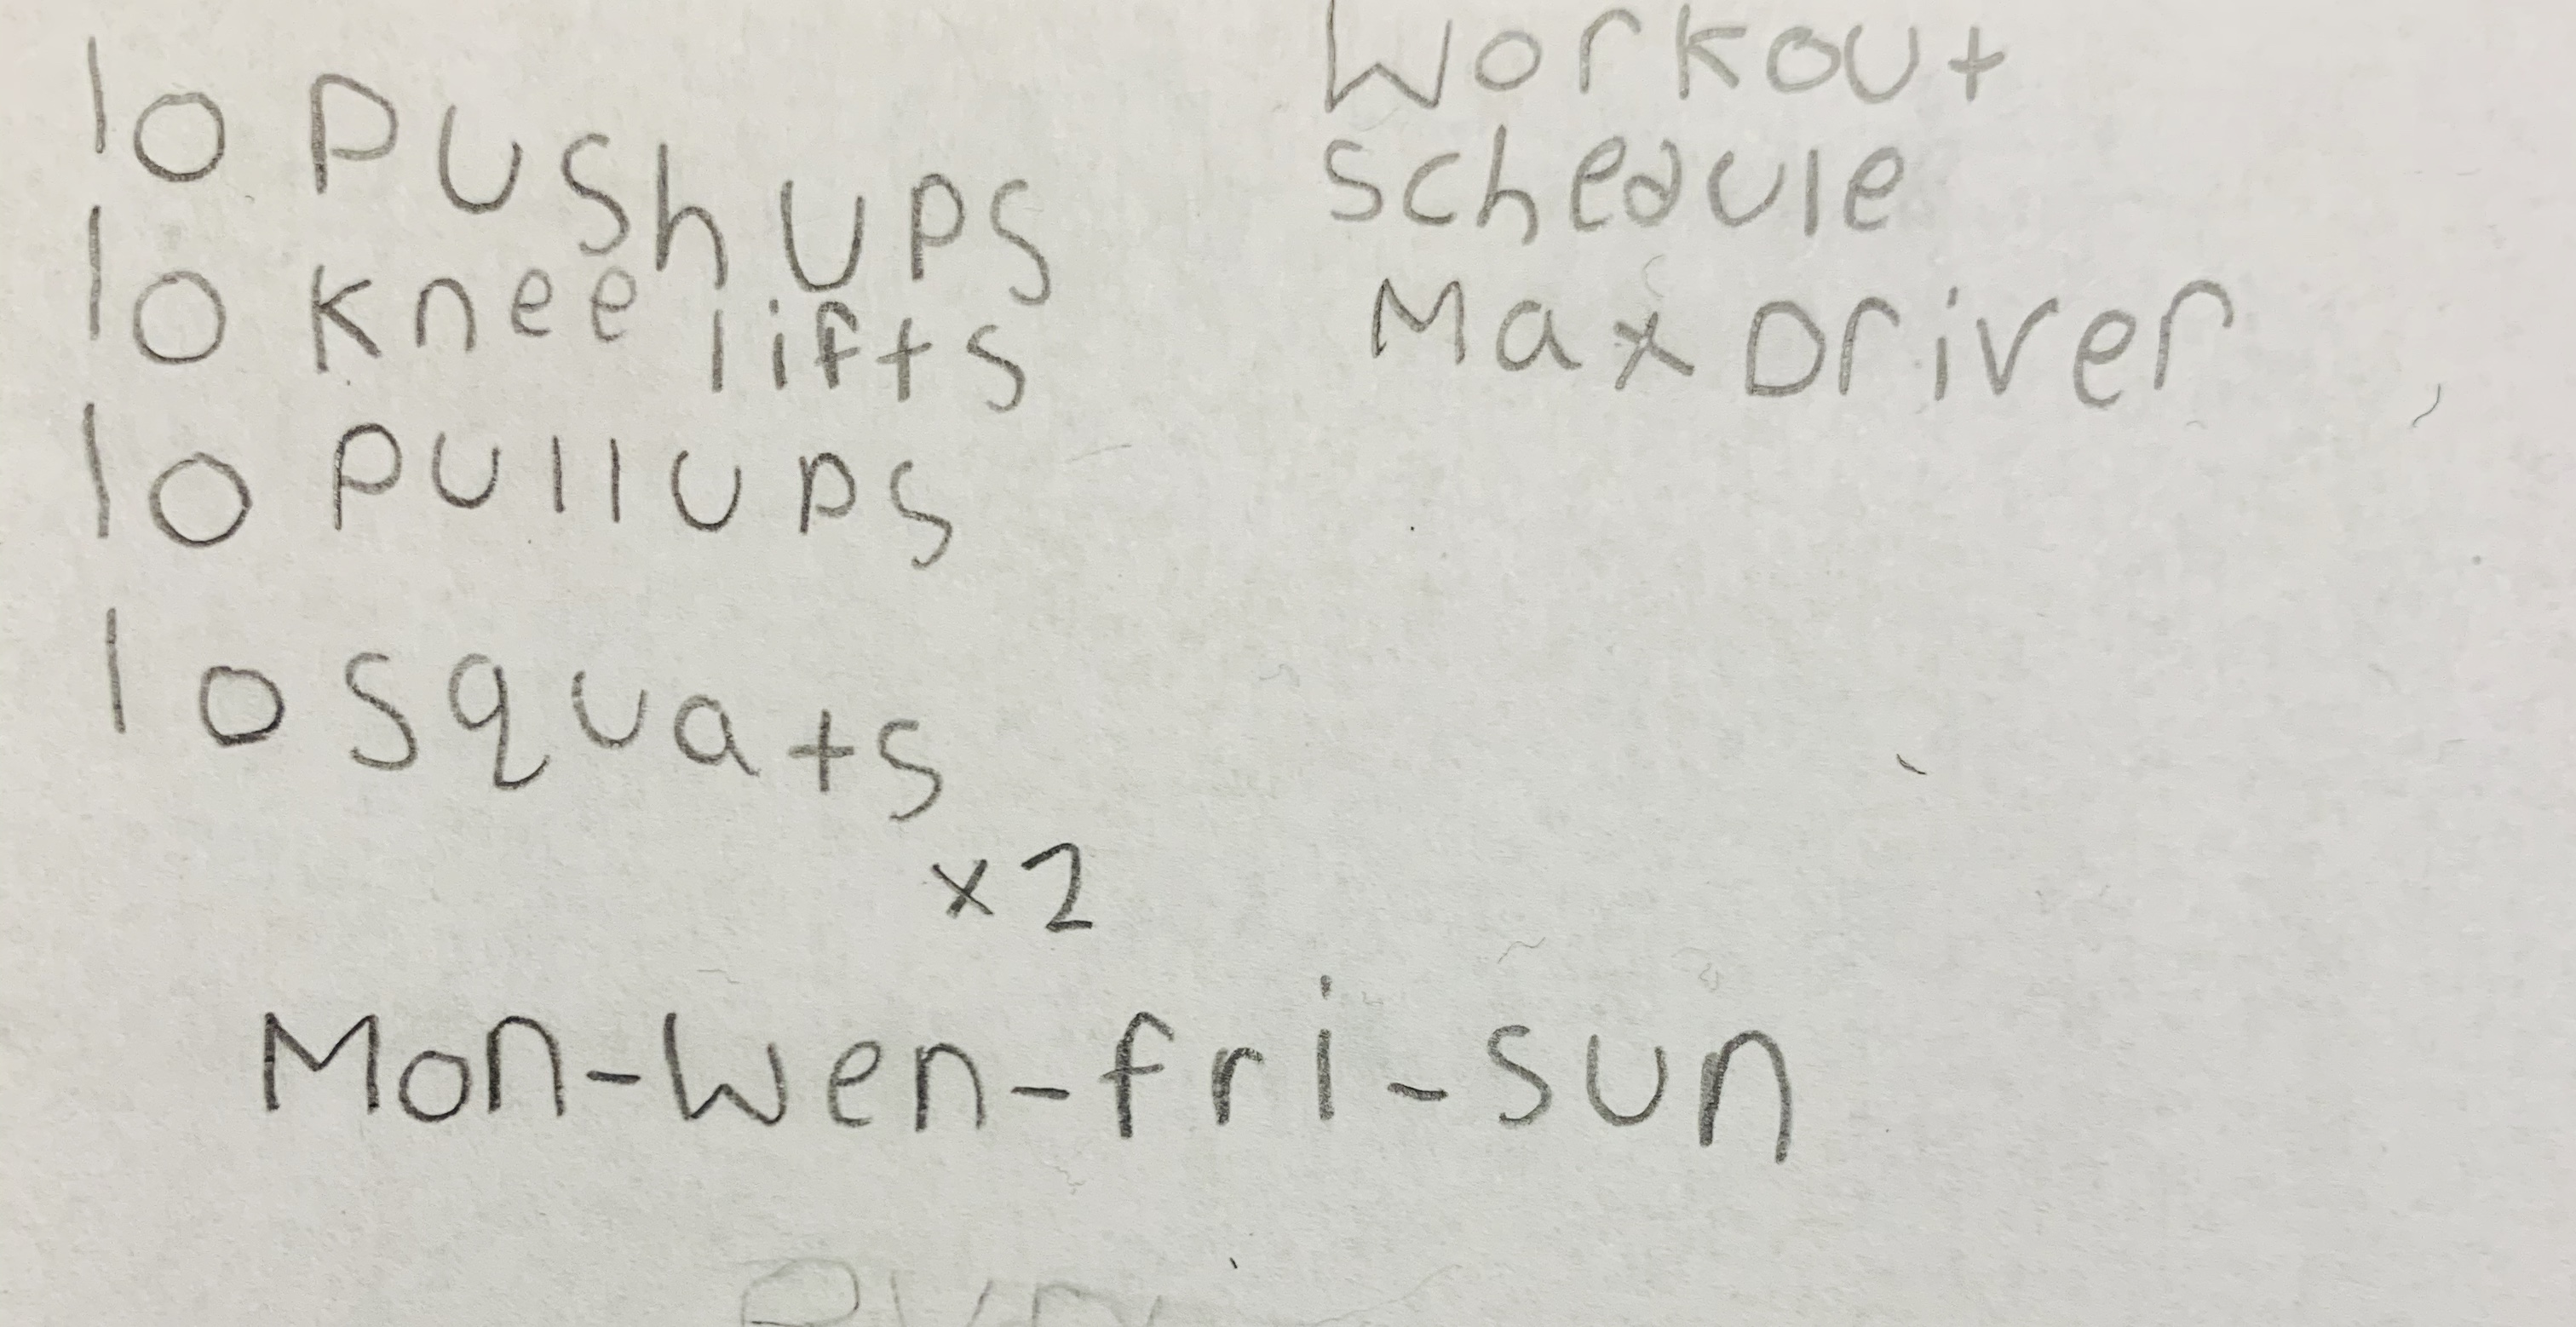 Workout
schedule
Max Driver
10 Pushups
10 knee lifts
10 Pullups
10 squats
x2
Mon-Wen-fri-sun